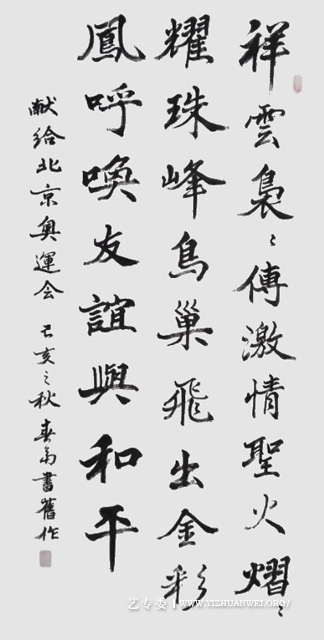 祥雲裊〻傳激情聖火熠〻
耀珠峰鳥巢飛出金彩
鳳呼喚友誼與和平
献给北京奥運会 己亥之秋 春書舊作
艺专委 WWW.YIZHUANWEI.ORG/